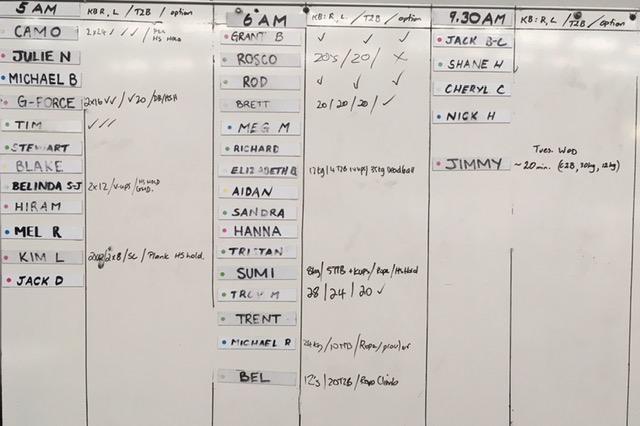 5 AM KB R, L / T2B / option
CAMO 2x24 ✓ ✓ / HS HOLD
JULIE N
MICHAEL B
G-FORCE 2x16 ✓✓ / ✓ 20 /
TIM ✓✓✓
STEWART
BLAKE
BELINDA S-J 2x12 / v-ups / HS HOLD
HIRAM
MEL R
KIM L 2x8 / SC / Plank HS hold.
JACK D
6 AM KB: R, L / T2B / option
GRANT B ✓ ✓ ✓
ROSCO 20's / 20 / X
ROD ✓ ✓ ✓
BRETT 20 / 20 / 20 / ✓
MEG M
RICHARD
ELIZABETH B 12kg / 4 TTB + vups / 35kg Deadball
AIDAN
SANDRA
HANNA
TRISTAN
SUMI 8kg / 5TTB + kups / Rope / HS Hold
TROY M 28 / 24 / 20 ✓
TRENT
MICHAEL R 24kg / 10TTB / Rope / prowler
BEL 12's / 20T2B / Rope Climb
9.30AM KB: R, L / T2B / option
JACK B-C
SHANE H
CHERYL C
NICK H
Tues. WOD
JIMMY ~ 20 min. (62B, 20kg, 12kg)